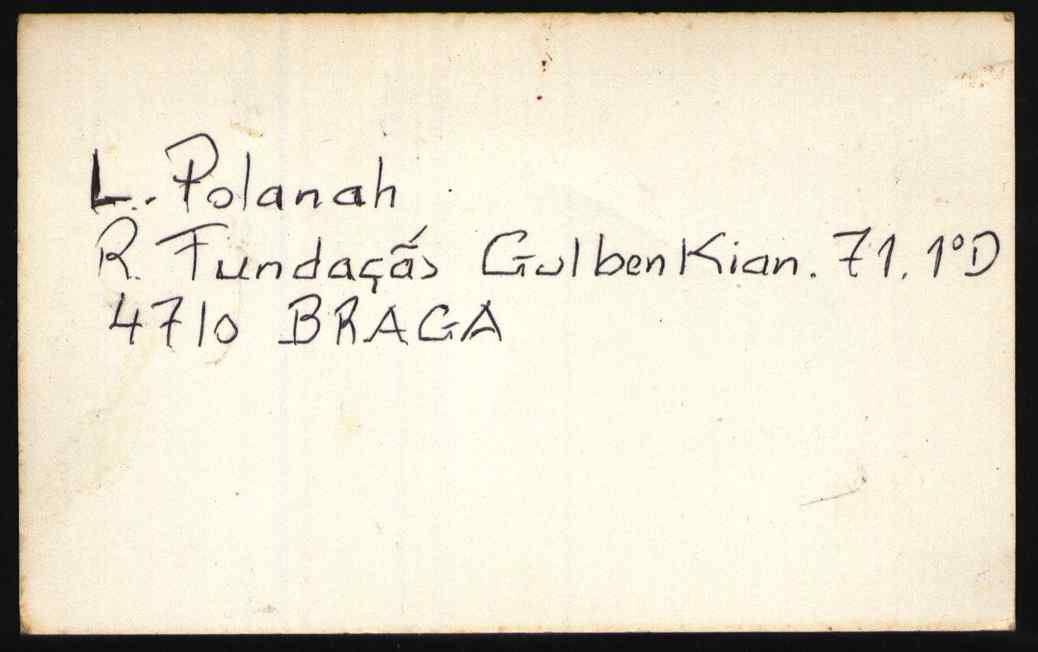 L. Polanah
R. Fundação Gulbenkian. 71. 1ºD
4710 BRAGA